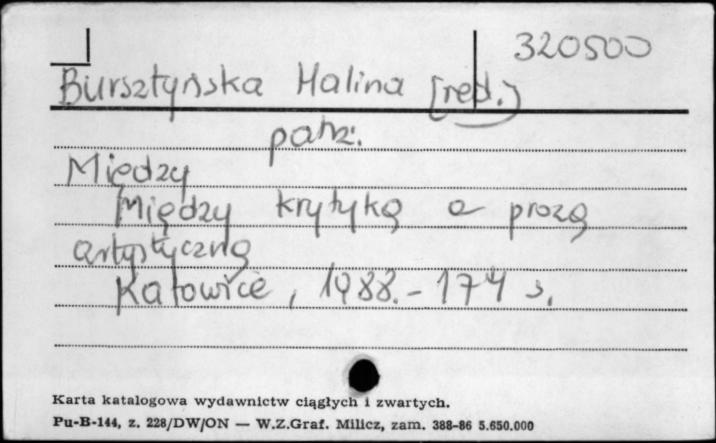 320500
Bursztyńska Halina [red.]
patrz:
Między
Między krytyką a prozą
artystyczną
Katowice, 1988. - 174 s.
Karta katalogowa wydawnictw ciągłych i zwartych.
Pu-B-144, z. 228/DW/ON — W.Z.Graf. Milicz, zam. 388-86 5.650.000